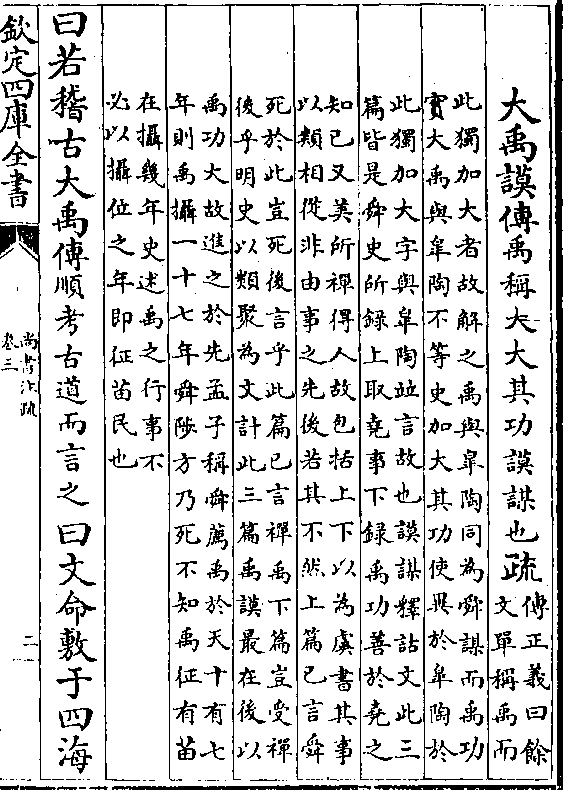 大禹謨傳禹稱大大其功謨謀也疏傳正義曰餘
文單稱禹而
此獨加大者故解之禹與臯陶同為舜謀而禹功
實大禹與臯陶不等史加大其功使異於臯陶於
此獨加大字與臯陶竝言故也謨謀釋詁文此三
篇皆是舜史所錄上取堯事下錄禹功善於堯之
知已又美所禪得人故包括上下以為虞書其事
以類相從非由事之先後若其不然上篇已言舜
死於此豈死後言乎此篇已言禪禹下篇豈受禪
後乎明史以類聚為文計此三篇禹謨最在後以
禹功大故進之於先孟子稱舜薦禹於天十有七
年則禹攝一十七年舜陟方乃死不知禹征有苗
在攝幾年史述禹之行事不
必以攝位之年即征苗民也
曰若稽古大禹傳順考古道而言之曰文命敷于四海
欽定四庫全書
尚書注疏
卷三
二